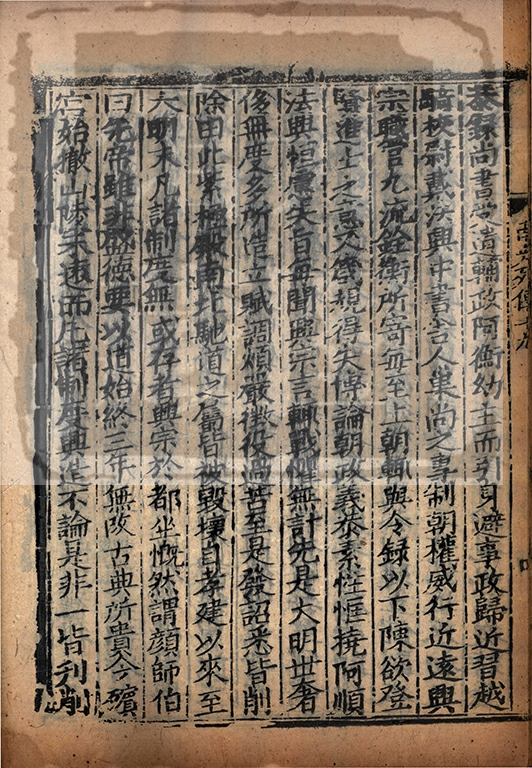 恭録尚書受遺輔政阿衡幼主而引身避事政歸近習越
騎校尉戴法興中書舍人巢尚之專制朝權威行近遠興
宗職管九流銓衡所寄每至上朝輒與令録以下陳欲登
賢進士之意又箴規得失博論朝政義恭素性恇撓阿順
法興恒慮失旨每聞興宗言輒戰懼無計先是大明世奢
侈無度多所造立賦調煩嚴徵役過苦至是發詔悉皆削
除由此紫極殿南北馳道之屬皆被毀壞自孝建以來至
大明末凡諸制度無或存者興宗於都坐慨然謂顏師伯
曰先帝雖非盛德要以道始終三年無改古典所貴今殯
宮始撤山陵未遠而凡諸制度興造不論是非一皆刋削